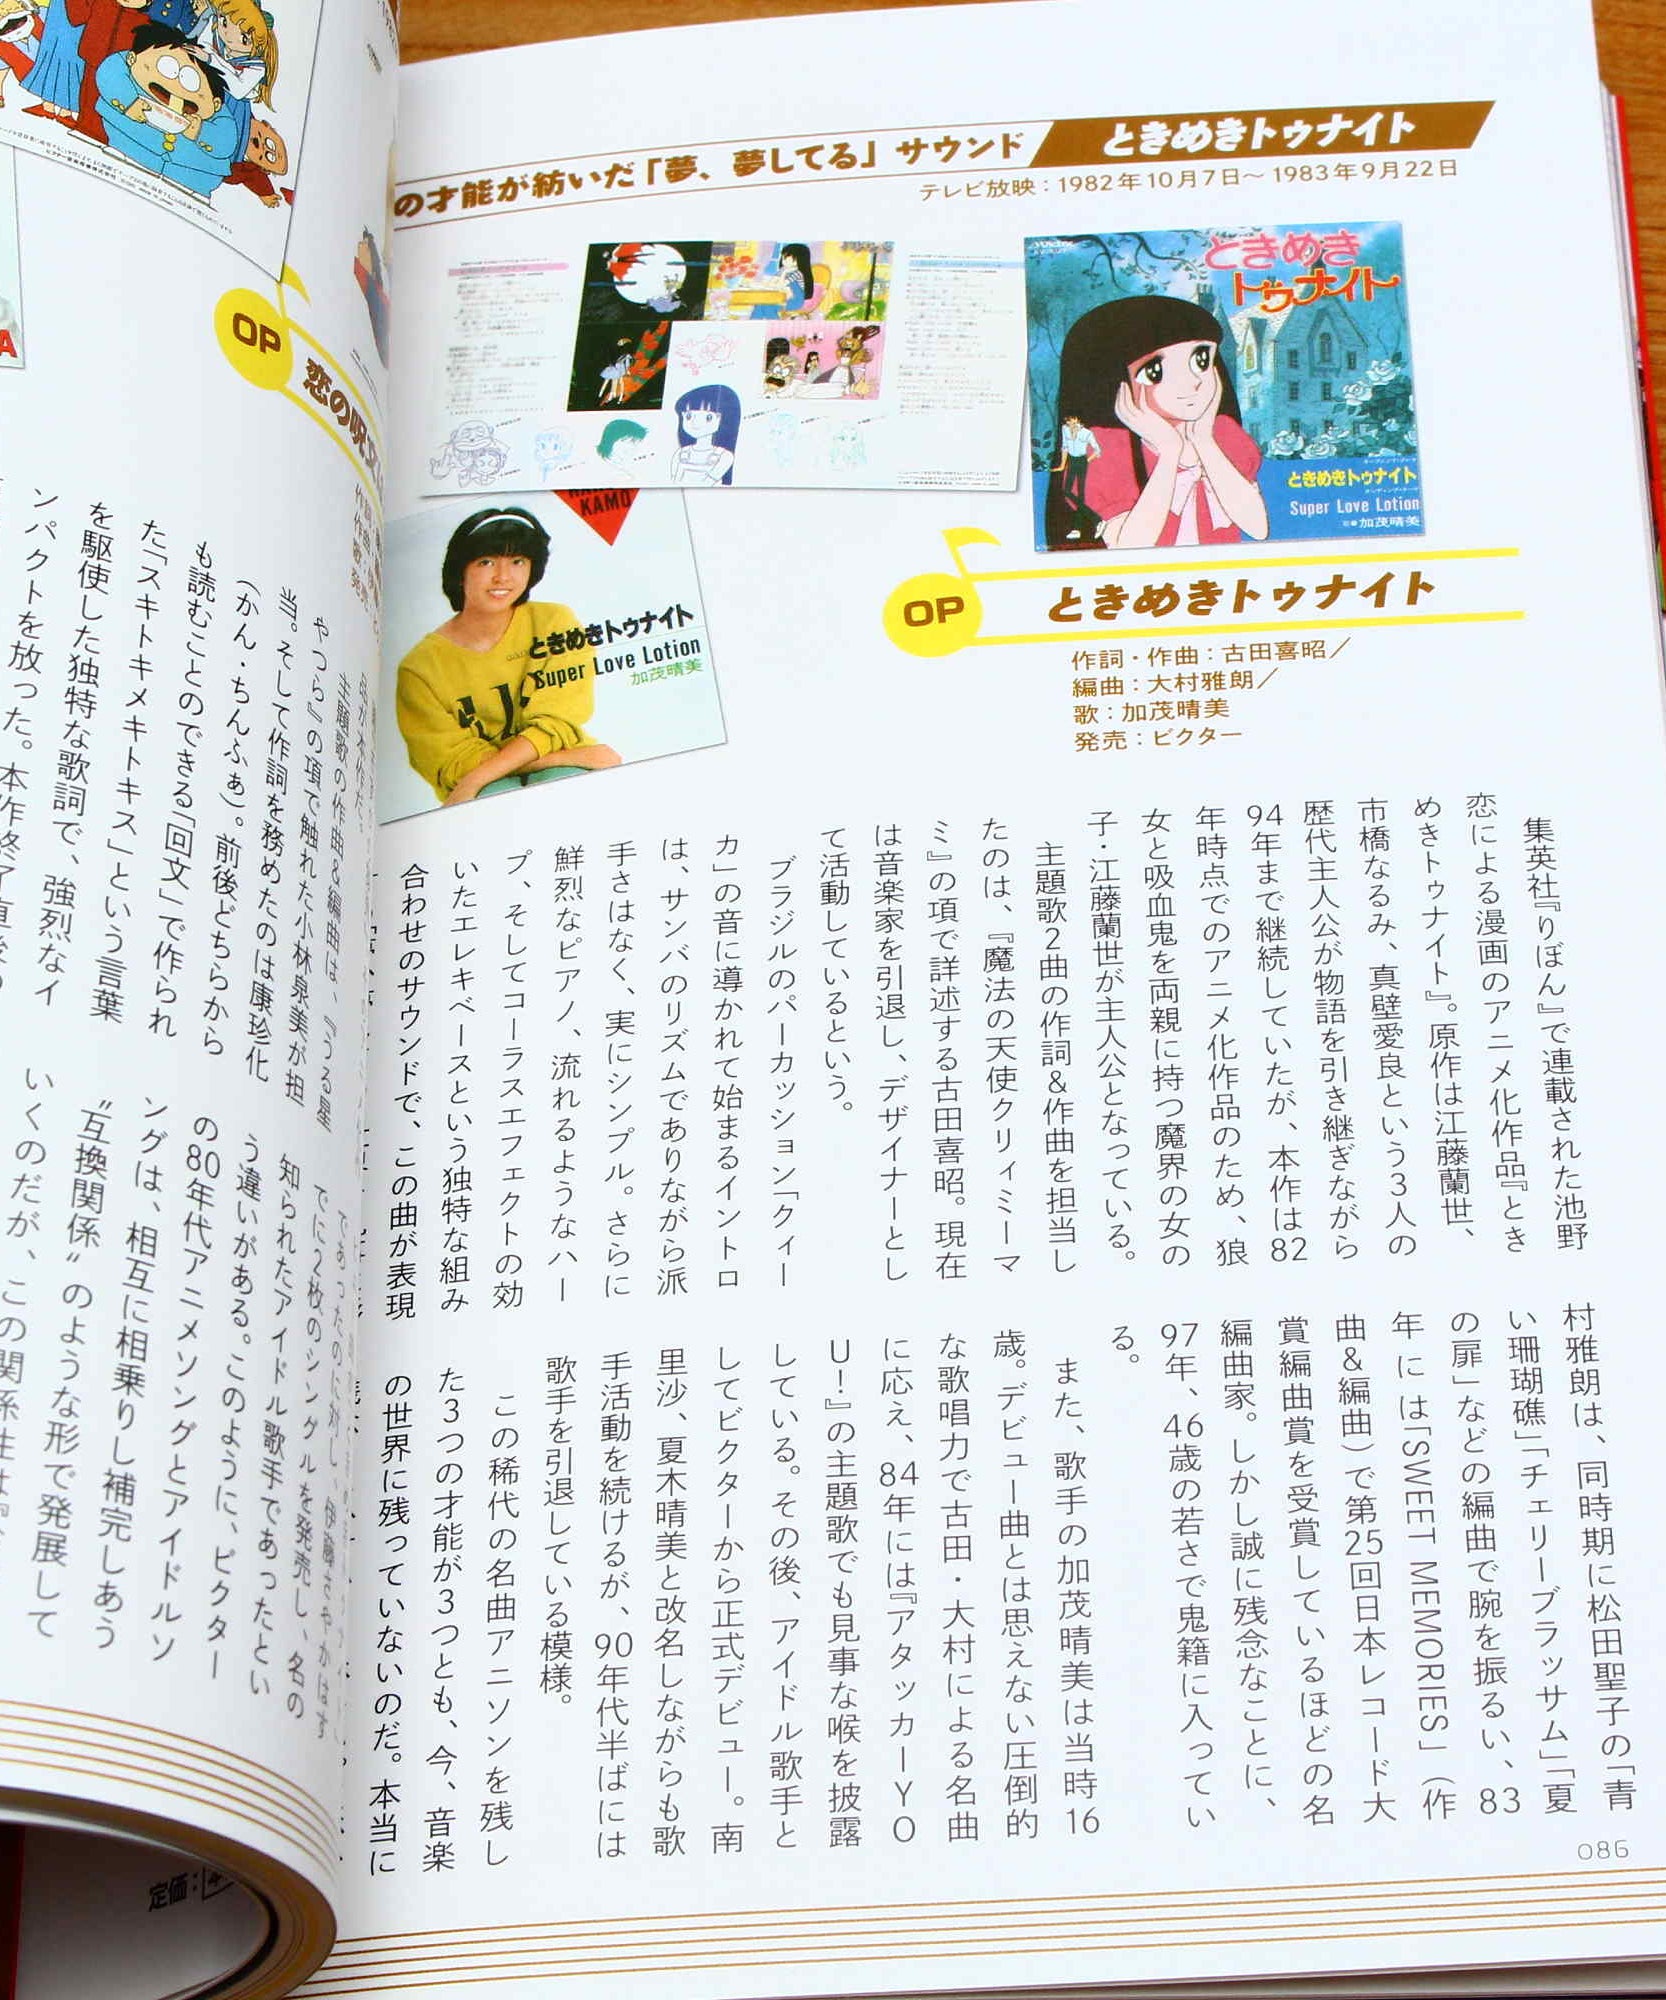 の才能が紡いだ「夢、夢してる」サウンド
ときめきトゥナイト
テレビ放映：1982年10月7日〜1983年9月22日
ときめき
トゥナイト
ときめきトゥナイト
Super Love Lotion
加茂晴美
KAMO
ときめきトゥナイト
Super Love Lotion
加茂晴美
OP
ときめきトゥナイト
作詞・作曲：古田喜昭／
編曲：大村雅朗／
歌：加茂晴美
発売：ビクター
集英社『りぼん』で連載された池野
恋による漫画のアニメ化作品『とき
めきトゥナイト』。原作は江藤蘭世、
市橋なるみ、真壁愛良という3人の
歴代主人公が物語を引き継ぎながら
94年まで継続していたが、本作は82
年時点でのアニメ化作品のため、狼
女と吸血鬼を両親に持つ魔界の女の
子・江藤蘭世が主人公となっている。
主題歌2曲の作詞&作曲を担当し
たのは、『魔法の天使クリィミーマ
ミ』の項で詳述する古田喜昭。現在
は音楽家を引退し、デザイナーとし
て活動しているという。
ブラジルのパーカッション「クィー
カ」の音に導かれて始まるイントロ
は、サンバのリズムでありながら派
手さはなく、実にシンプル。さらに
鮮烈なピアノ、流れるようなハー
プ、そしてコーラスエフェクトの効
いたエレキベースという独特な組み
合わせのサウンドで、この曲が表現
村雅朗は、同時期に松田聖子の「青
い珊瑚礁」「チェリーブラッサム」「夏
の扉」などの編曲で腕を振るい、83
年には「SWEET MEMORIES」（作
曲&編曲）で第25回日本レコード大
賞編曲賞を受賞しているほどの名
編曲家。しかし誠に残念なことに、
97年、46歳の若さで鬼籍に入ってい
る。
また、歌手の加茂晴美は当時16
歳。デビュー曲とは思えない圧倒的
な歌唱力で古田・大村による名曲
に応え、84年には『アタッカーYO
U!』の主題歌でも見事な喉を披露
している。その後、アイドル歌手と
してビクターから正式デビュー。南
里沙、夏木晴美と改名しながらも歌
手活動を続けるが、90年代半ばには
歌手を引退している模様。
この稀代の名曲アニソンを残し
た3つの才能が3つとも、今、音楽
の世界に残っていないのだ。本当に
086
OP
恋の呪文
主題歌の作曲&編曲は、『うる星
やつら』の項で触れた小林泉美が担
当。そして作詞を務めたのは康珍化
（かん・ちんふぁ）。前後どちらから
も読むことのできる「回文」で作られ
た「スキトキメキトキス」という言葉
を駆使した独特な歌詞で、強烈なイ
ンパクトを放った。本作終了直後の
であったのに対し、伊藤さやかはす
でに2枚のシングルを発売し、名の
知られたアイドル歌手であったとい
う違いがある。このように、ビクター
の80年代アニメソングとアイドルソ
ングは、相互に相乗りし補完しあう
“互換関係”のような形で発展して
いくのだが、この関係性は『
定価：